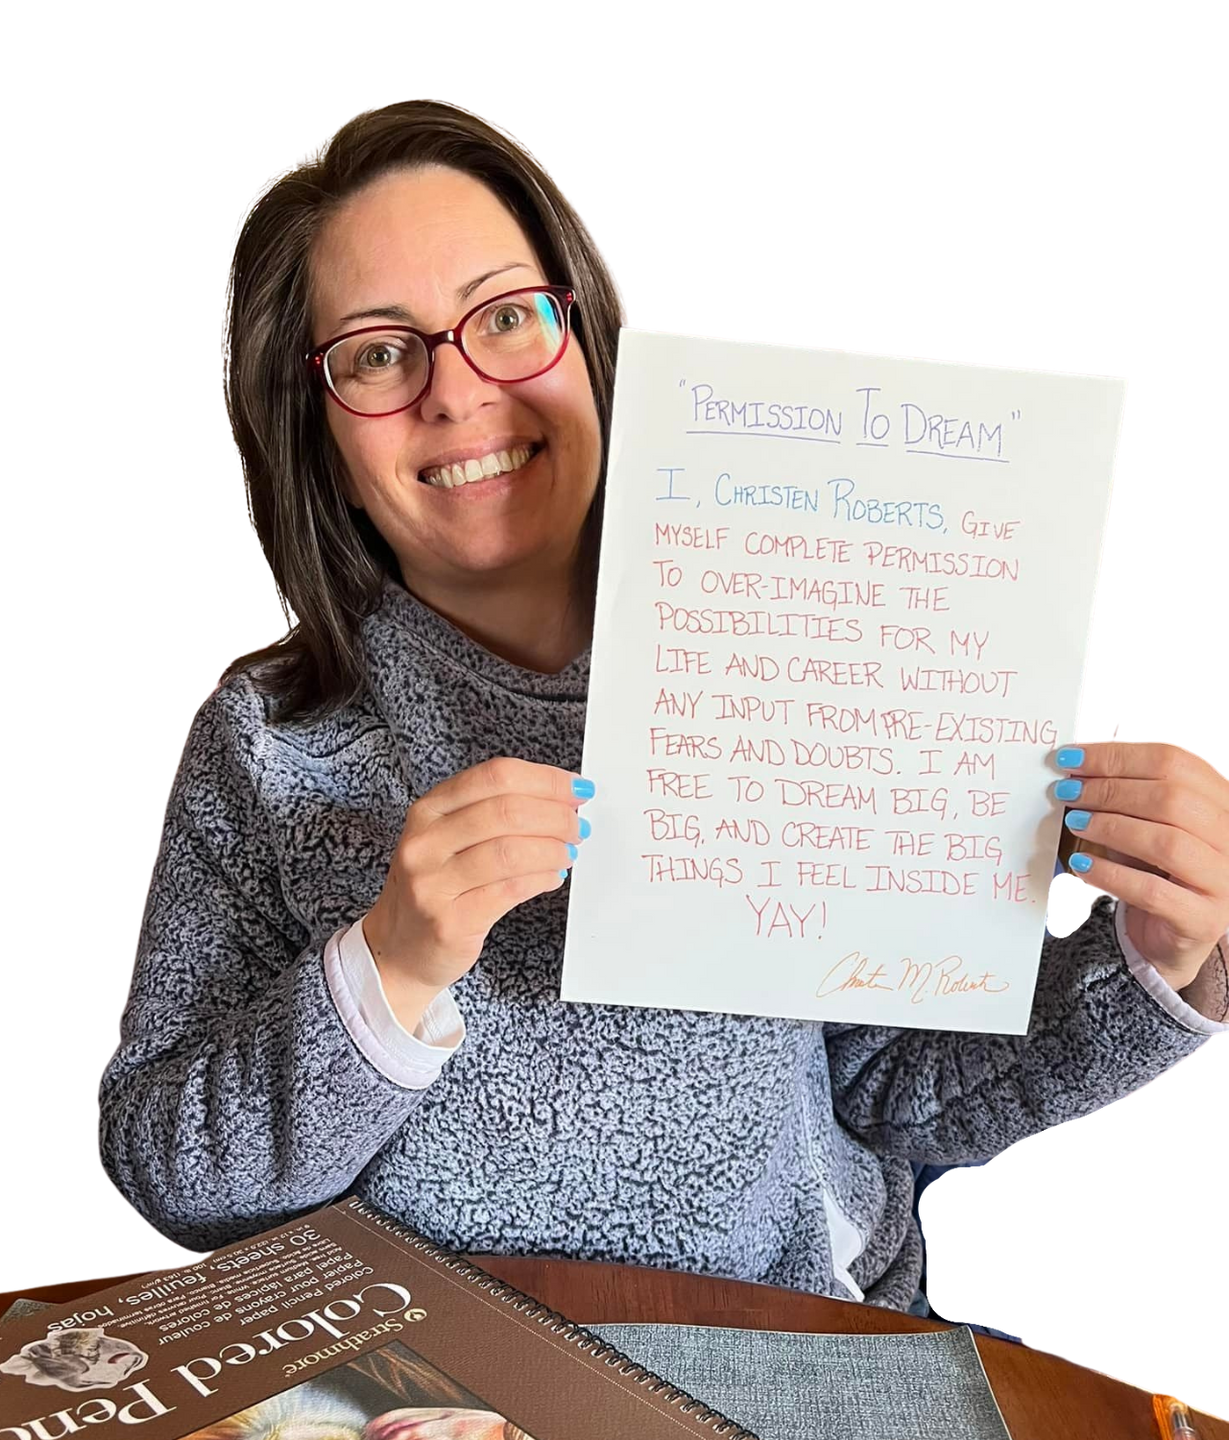 "PERMISSION TO DREAM"
I, CHRISTEN ROBERTS, GIVE
MYSELF COMPLETE PERMISSION
TO OVER-IMAGINE THE
POSSIBILITIES FOR MY
LIFE AND CAREER WITHOUT
ANY INPUT FROM PRE-EXISTING
FEARS AND DOUBTS. I AM
FREE TO DREAM BIG, BE
BIG, AND CREATE THE BIG
THINGS I FEEL INSIDE ME.
YAY!
Christen M. Roberts
Strathmore
Colored Penc
Colored Pencil paper
Papel pour crayons de couleur
Papel para lápices de colores
30 sheets, feuilles, hojas